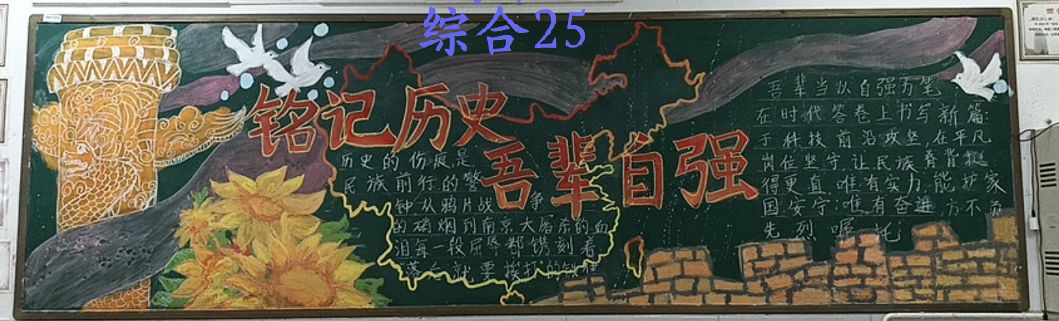 综合25
铭记历史
吾辈自强
历史的伤痕是
民族前行的警
钟从鸦片战争
的硝烟到南京大屠杀的血
泪每一段屈辱都镌刻着
落后就要挨打的
吾辈当以自强为笔
在时代答卷上书写新篇:
于科技前沿攻坚,在平凡
岗位坚守,让民族脊背挺
得更直唯有实力能护家
国安宁:唯有奋进方不负
先烈嘱托